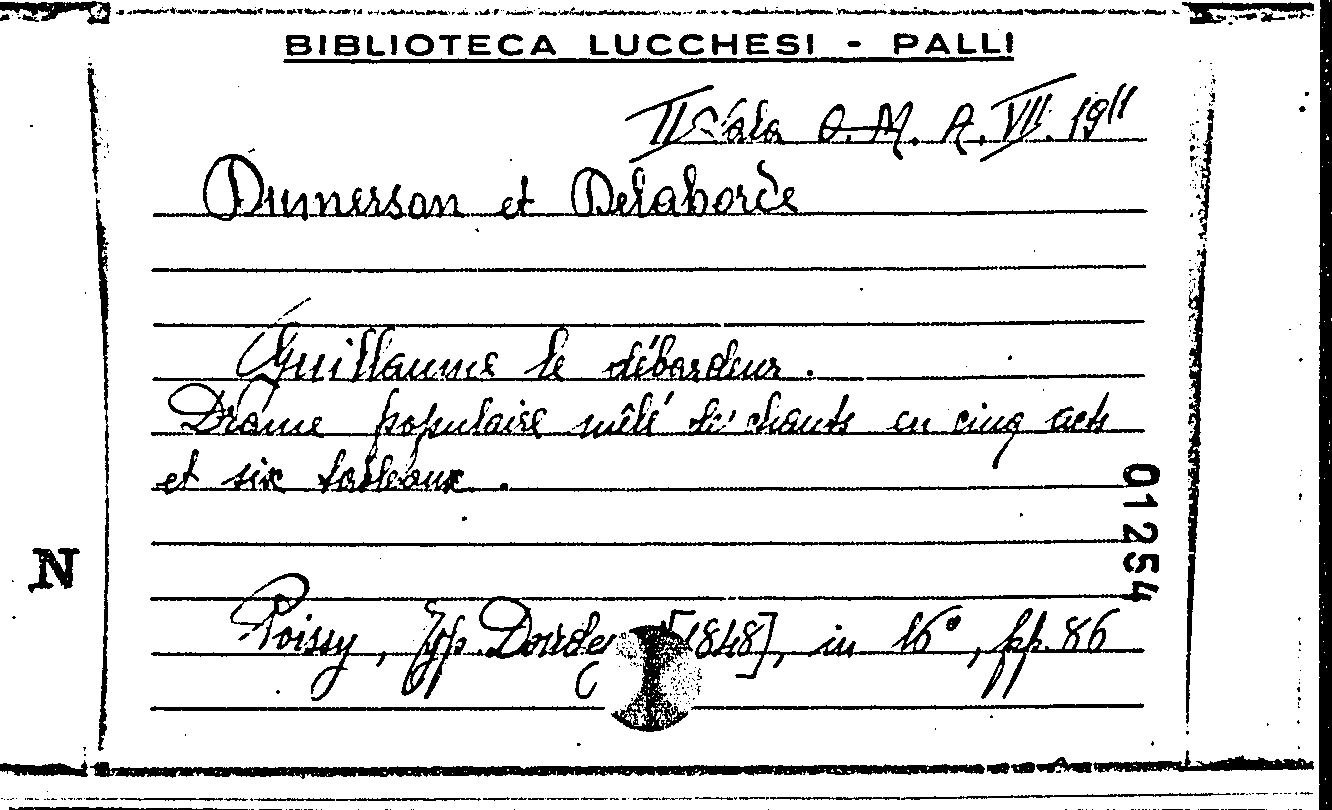 BIBLIOTECA LUCCHESI - PALLI
II Sala O.M. A. VII. 19 11
Dumersan et Delaborde
Guillaume le débardeur.
Drame populaire mêlé de chants en cinq acts
et six tableaux.
01254
N
Poissy, Typ. [1848], in 16°, pp. 86